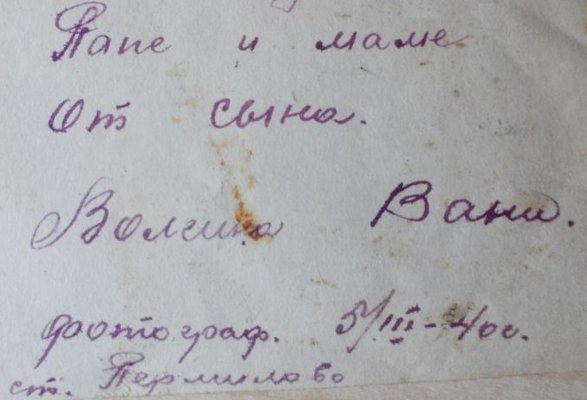 Папе и маме
От сына.
Волжина Вани.
фотограф. 5/III-40г.
ст. Пермилово